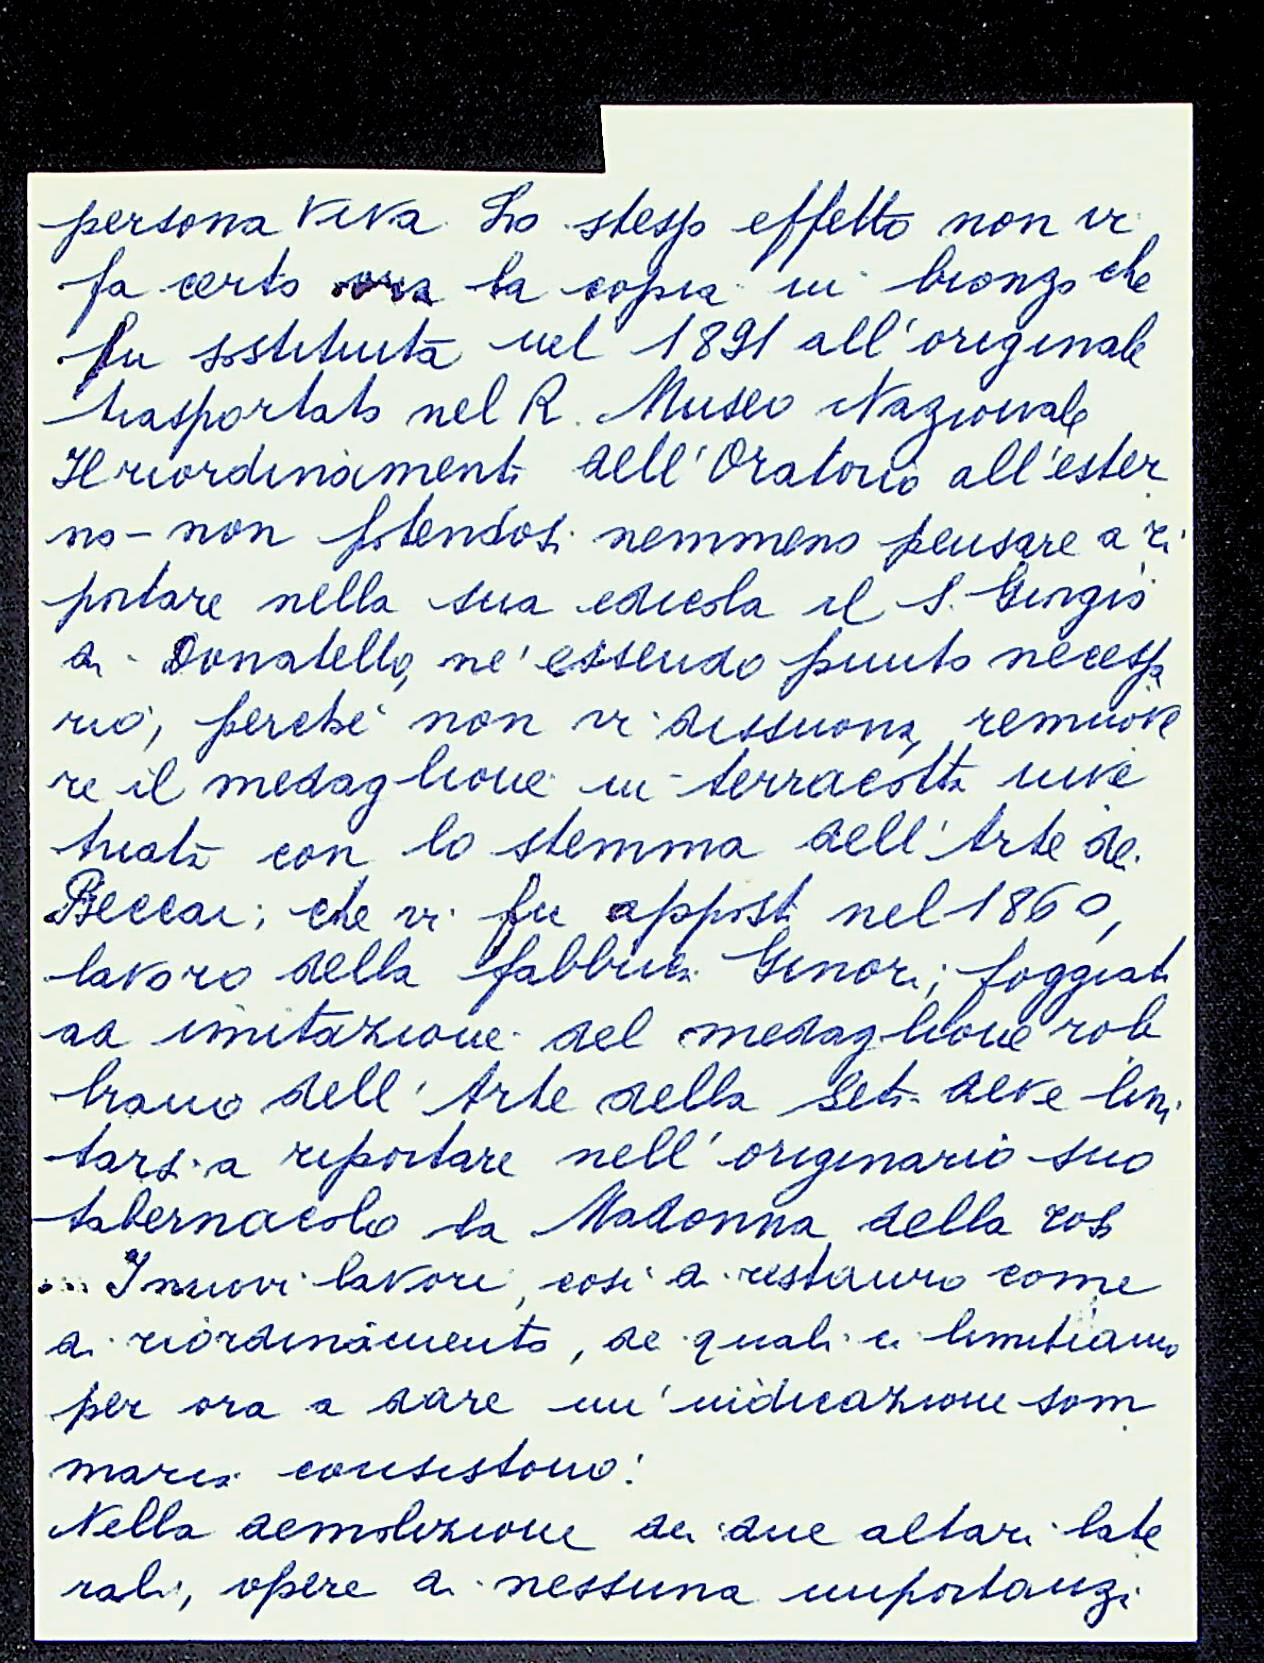 persona viva. Lo stesso effetto non vi
fa certo ora la copia in bronzo che
fu sostituita nel 1891 all'originale
trasportato nel R. Museo Nazionale
Il riordinamento dell'Oratorio all'ester
no - non potendosi nemmeno pensare a ri
portare nella sua edicola il S. Giorgio
di Donatello, né essendo punto necessa
rio, perché non vi dissuona, remuove
re il medaglione in terracotta inve
triata con lo stemma dell'Arte dei
Beccai; che vi fu apposto nel 1860,
lavoro della fabbrica Ginori; foggiato
ad imitazione del medaglione rob
biano dell'Arte della Seta - deve limi
tarsi a riportare nell'originario suo
tabernacolo la Madonna della rosa
... I nuovi lavori, così di restauro come
di riordinamento, de quali ci limitiamo
per ora a dare un'indicazione som
maria consistono:
Nella demolizione dei due altari late
rali, opere di nessuna importanza